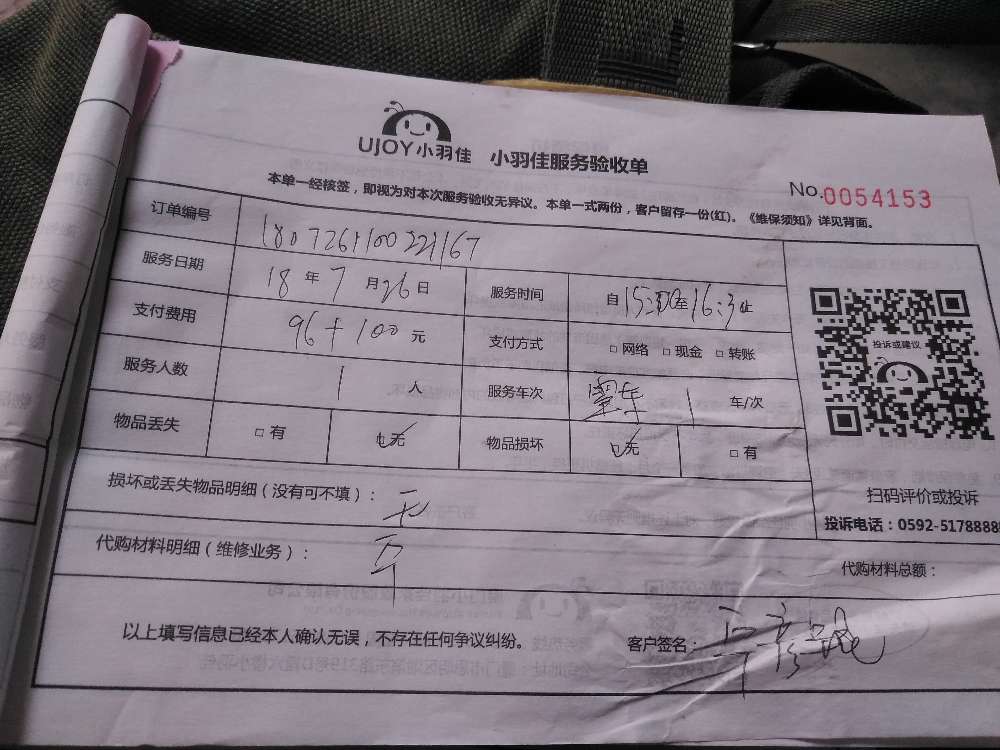 UJOY小羽佳 小羽佳服务验收单
No.0054153
本单一经核签，即视为对本次服务验收无异议。本单一式两份，客户留存一份(红)。《维保须知》详见背面。
订单编号
服务日期 18 年 7 月 26 日 服务时间 自 15:00 至 16:3 止
支付费用 96+100 元 支付方式 □ 网络 □ 现金 □ 转账
投诉或建议
服务人数 1 人 服务车次 1 车/次
物品丢失 □ 有 □无 物品损坏 □无 □ 有
损坏或丢失物品明细（没有可不填）： 无
扫码评价或投诉
投诉电话：0592-5178888
代购材料明细（维修业务）：
代购材料总额：
以上填写信息已经本人确认无误，不存在任何争议纠纷。 客户签名：